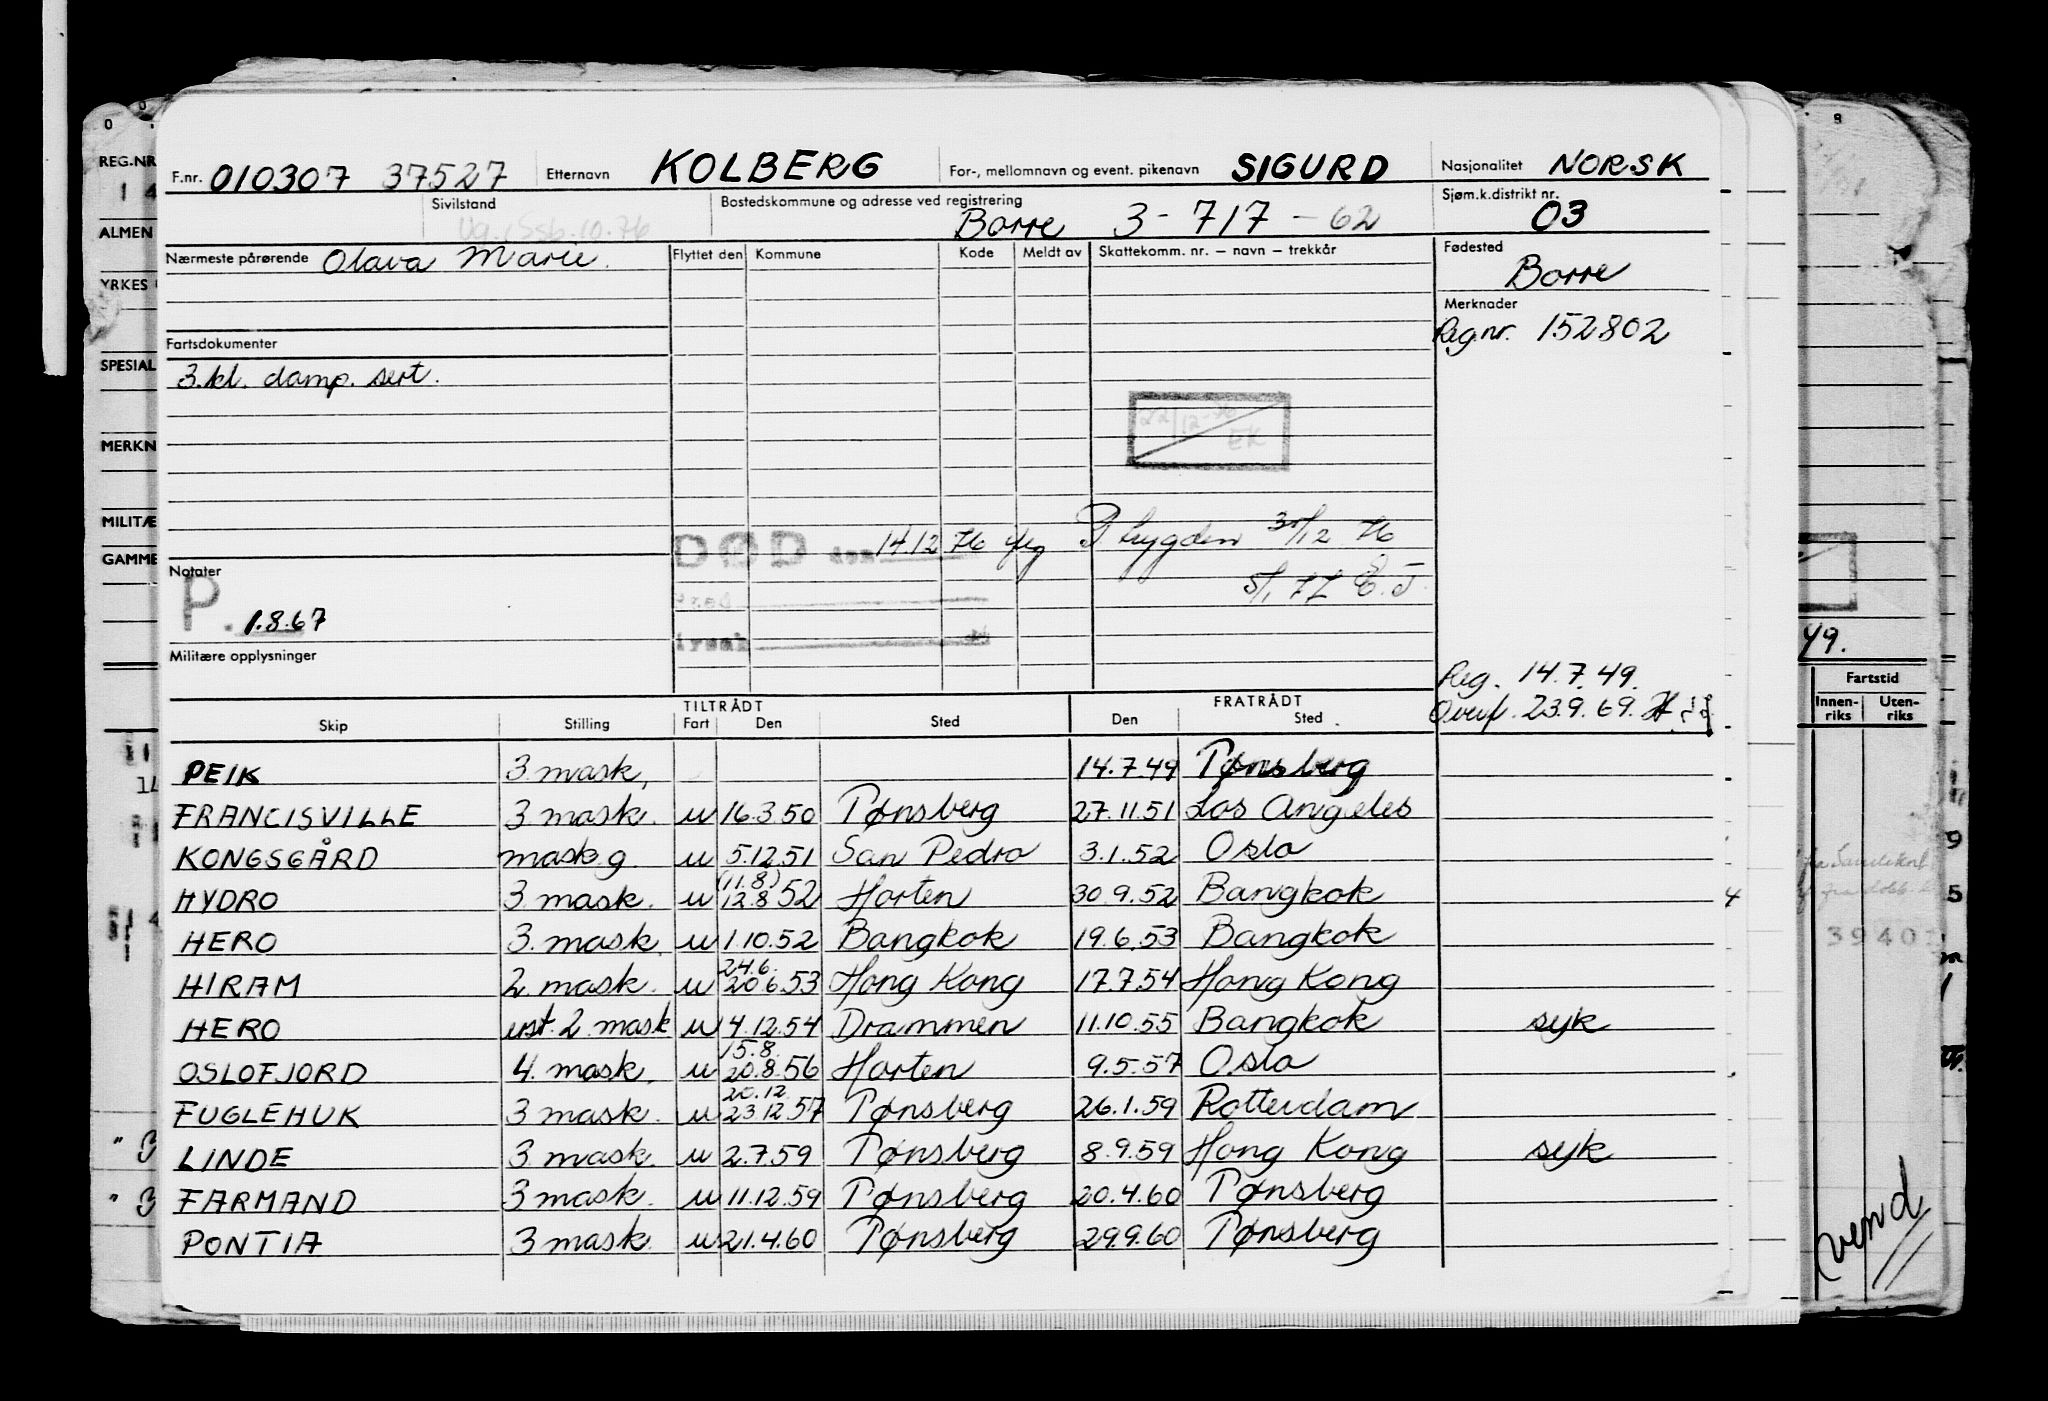 F.nr. 010307 37527 Etternavn KOLBERG For-, mellomnavn og event. pikenavn SIGURD Nasjonalitet NORSK
Sivilstand Bostedskommune og adresse ved registrering Borre 3-717-62 Sjøm.k.distrikt nr. 03
Nærmeste pårørende Olava Marie. Flyttet den Kommune Kode Meldt av Skattekomm. nr. – navn – trekkår Fødested
Borre
Merknader
Reg.nr. 152802
Fartsdokumenter
3.kl. damp. sert.
22/12-76
EK
DØD den 14.12 76
30/12 76
5/1 77 E.J.
Notater
P. 1.8.67
Militære opplysninger
Reg. 14.7.49.
Overf. 23.9.69.
TILTRÅDT FRATRÅDT
Skip Stilling Fart Den Sted Den Sted
PEIK 3 mask. 14.7.49 Tønsberg
FRANCISVILLE 3 mask. u 16.3.50 Tønsberg 27.11.51 Los Angeles
KONGSGÅRD mask.g. u 5.12.51 San Pedro 3.1.52 Oslo
(11.8)
HYDRO 3 mask. u 12.8 52 Horten 30.9.52 Bangkok
HERO 3. mask. u 1.10.52 Bangkok 19.6.53 Bangkok
24.6.
HIRAM 2. mask. u 20.6.53 Hong Kong 17.7.54 Hong Kong
HERO ust. 2. mask u 4.12.54 Drammen 11.10.55 Bangkok syk
15.8.
OSLOFJORD 4. mask. u 20.8.56 Horten 9.5.57 Oslo
20.12.
FUGLEHUK 3 mask. u 23.12.57 Tønsberg 26.1.59 Rotterdam
LINDE 3 mask. u 2.7.59 Tønsberg 8.9.59 Hong Kong syk
FARMAND 3 mask. u 11.12.59 Tønsberg 20.4.60 Tønsberg
PONTIA 3 mask. u 21.4.60 Tønsberg 29.9.60 Tønsberg
REG.NR
ALMEN
YRKES
SPESIAL
MERKN
MILITÆ
GAMME
49.
Fartstid
Innen-riks Uten-riks
3940
vend